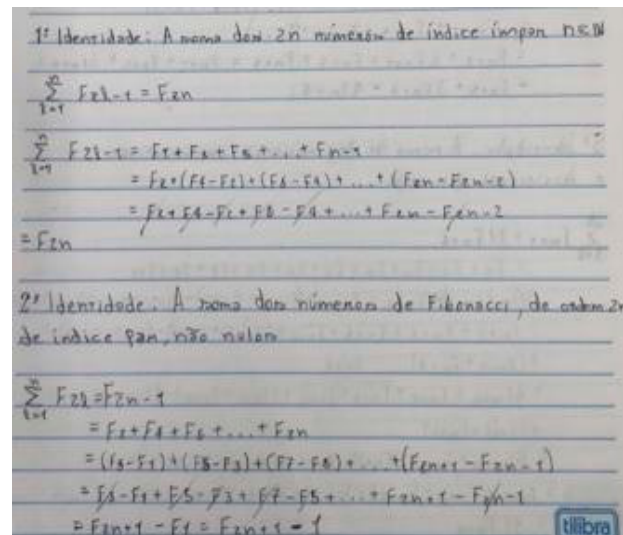 1ª Identidade: A soma dos 2n números de índice ímpar n∈ℕ
n
∑ F2l-1 = F2n
l=1
n
∑ F2l-1 = F1+F3+F5+...+Fn-1
l=1
= F2+(F4-F2)+(F6-F4)+...+(F2n-F2n-2)
= F2+F4-F2+F6-F4+...+F2n-F2n-2
= F2n
2ª Identidade: A soma dos números de Fibonacci, de ordem 2n
de índice par, não nulos
n
∑ F2l=F2n-1
l=1
= F2+F4+F6+...+F2n
= (F3-F1)+(F5-F3)+(F7-F5)+...+(F2n+1-F2n-1)
= F3-F1+F5-F3+F7-F5+...+F2n+1-F2n-1
= F2n+1-F1 = F2n+1-1
tilibra